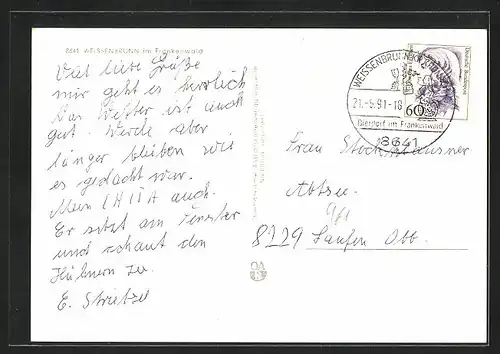 8641 WEISSENBRUNN im Frankenwald
Viel liebe Grüße
mir geht es herrlich
Das Wetter ist auch
gut. Werde aber
länger bleiben wie
es gedacht war.
Mein CHITA auch.
Er sitzt am Fenster
und schaut den
Hühnern zu.
E. Strietzel
WEISSENBRUNN
21.-5.91-18
Bierdorf im Frankenwald
8641
60
Deutsche Bundespost
Frau
Abtsee
8229 Laufen Obb.